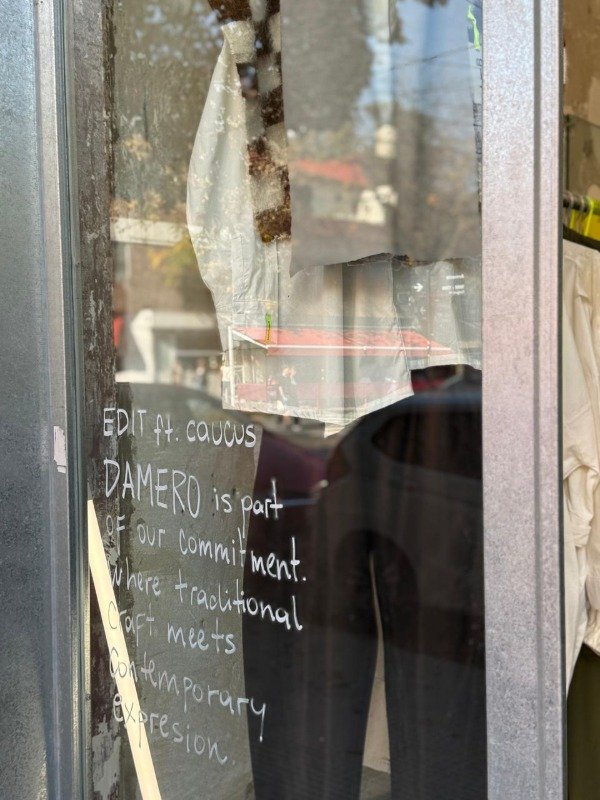 EDIT ft. caucus
DAMERO is part
OF our commitment.
where traditional
craft meets
contemporary
expresion.